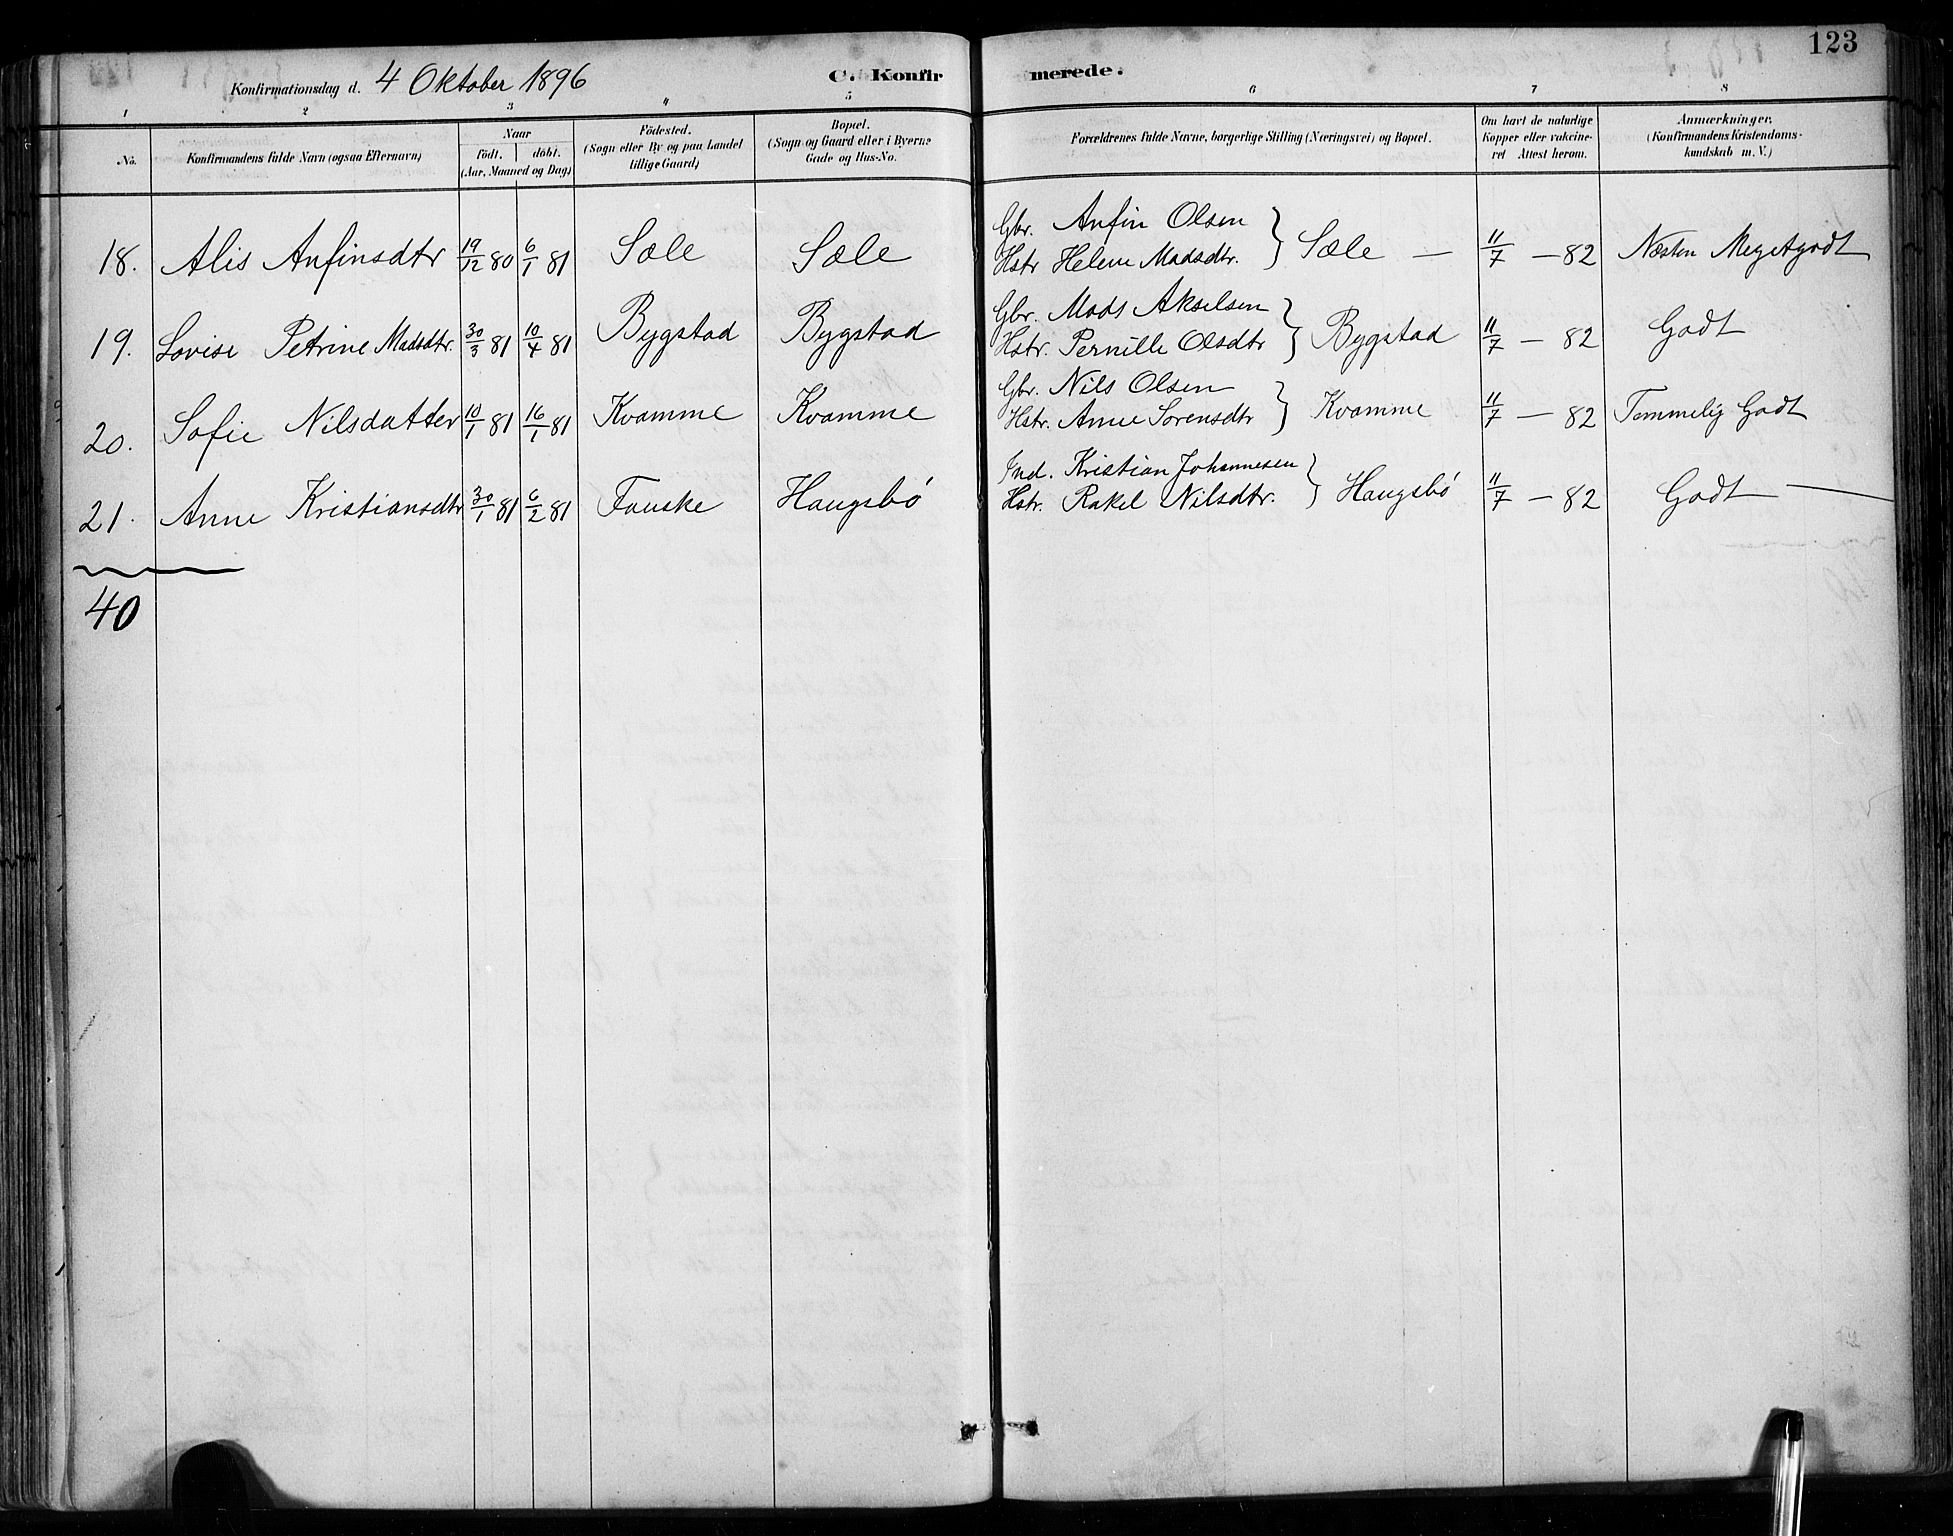 123
Konfirmationsdag d. 4 Oktober 1896 C. Konfirmerede.
1 2 3 4 5 6 7 8
No.
Konfirmandens fulde Navn (ogsaa Efternavn)
Naar
födt. döbt.
(Aar, Maaned og Dag)
Födested.
(Sogn eller By og paa Landet
tillige Gaard)
Bopæl.
(Sogn og Gaard eller i Byerne
Gade og Hus-No.
Forældrenes fulde Navne, borgerlige Stilling (Næringsvei) og Bopæl.
Om havt de naturlige
Kopper eller vakcine-
ret Attest herom.
Anmærkninger.
(Konfirmandens Kristendoms-
kundskab m. V.)
18. Alis Anfinsdtr 19/12 80 6/1 81 Sæle Sæle Gbr. Anfin Olsen
Hstr Helene Madsdtr. } Sæle — 11/7 — 82 Næsten Megetgodt
19. Lovise Petrine Madsdtr. 30/3 81 10/4 81 Bygstad Bygstad Gbr. Mads Akselsen
Hstr. Pernille Olsdtr } Bygstad 11/7 — 82 Godt
20. Sofie Nilsdatter 10/1 81 16/1 81 Kvamme Kvamme Gbr. Nils Olsen
Hstr. Anne Sorensdtr } Kvamme 11/7 — 82 Temmelig Godt
21. Anne Kristiansdtr 30/1 81 6/2 81 Fauske Haugsbö Ind. Kristian Johannesen
Hstr. Rakel Nilsdtr. } Haugsbö 11/7 — 82 Godt —
40